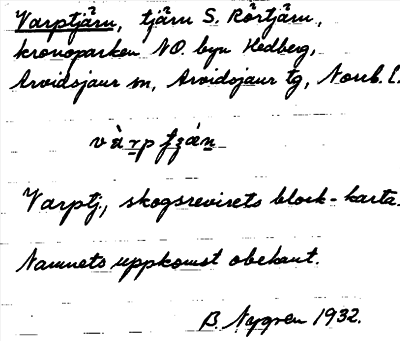 Varptjärn, tjärn S. Rörtjärn,
kronoparken NO. byn Hedberg,
Arvidsjaur sn, Arvidsjaur tg, Norrb. l.
Varptj., skogsrevirets block-karta.
Namnets uppkomst obekant.
B. Nygren 1932.